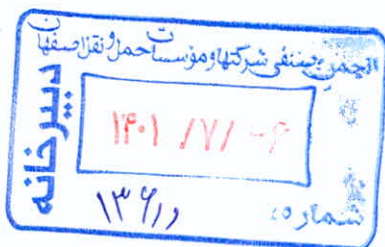 انجمن صنفی شرکتها و مؤسسات حمل و نقل اصفهان
دبیرخانه
۱۴۰۱ /۷/
شماره: